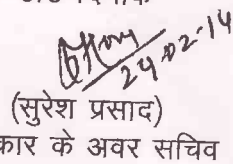 24-02-14
(सुरेश प्रसाद)
कार के अवर सचिव